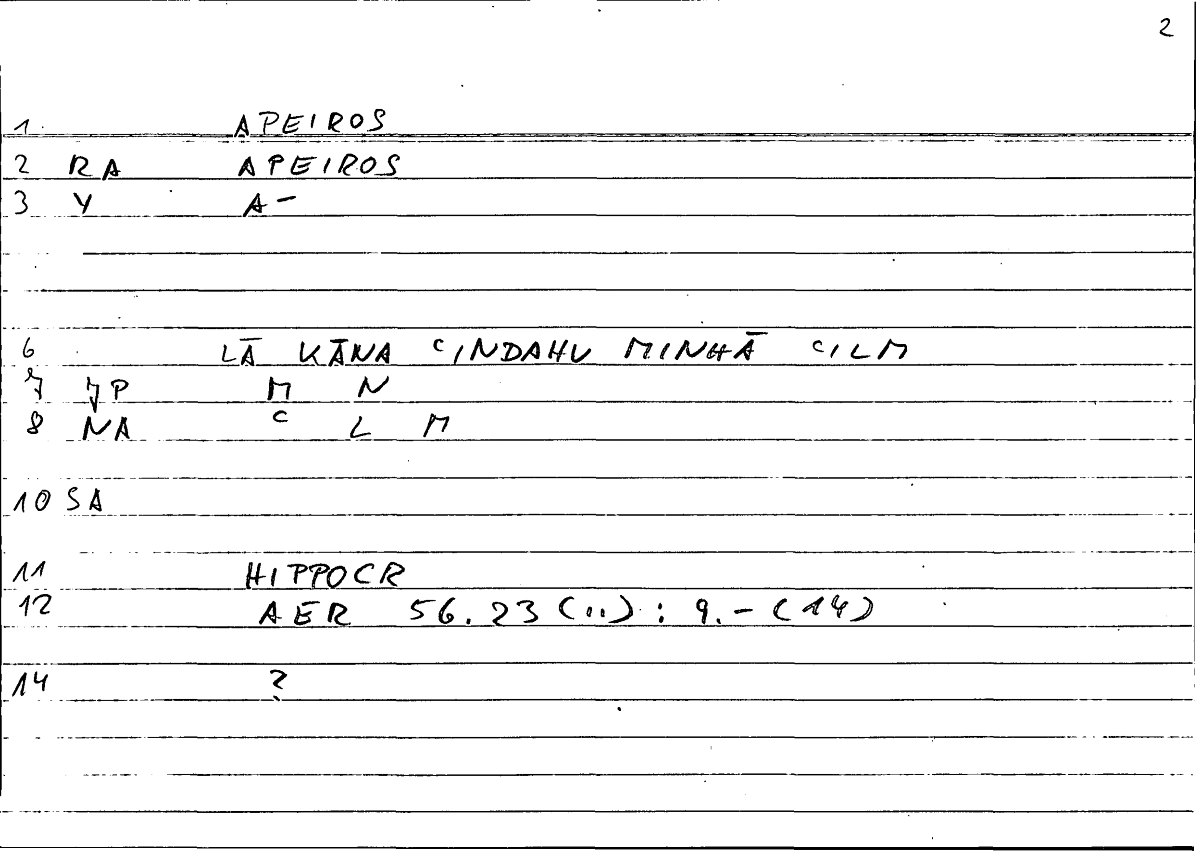 2
1 APEIROS
2 RA APEIROS
3 Y A-
6 LĀ KĀNA ᶜINDAHU MINHĀ ᶜILM
7 JP M N
8 NA ᶜ L M
10 SA
11 HIPPOCR
12 AER 56.23 (..) : 9.- (14)
14 ?